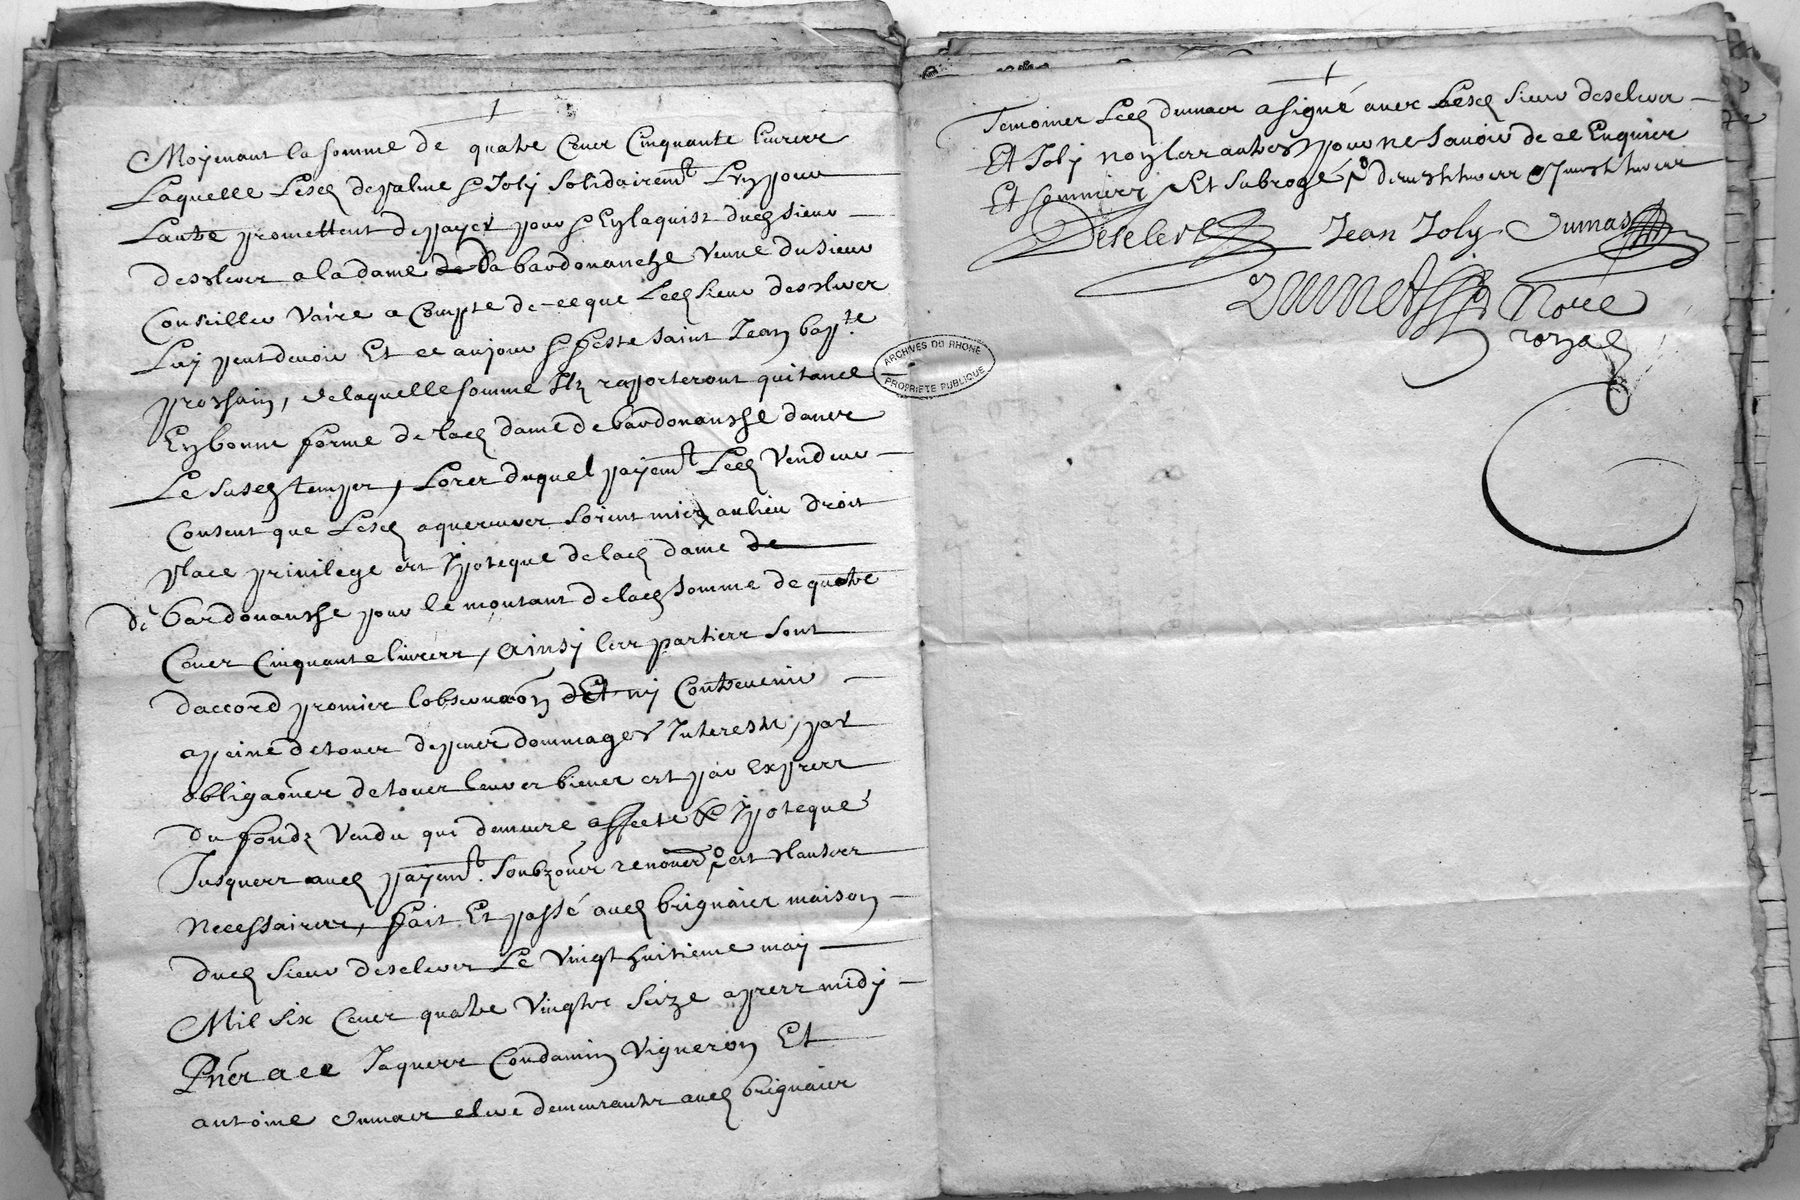 Moyenant la somme de quatre Cens Cinquante livres
Laquelle Lesd depalme & Joly solidairemt Lun pour
Lautre promettent de payer pour & En laquist dud sieur
desclers a la dame de la bardonanche veuve du sieur
Conseiller Vaire a Compte de ce que Led sieur desclers
Luy peut devoir Et ce au jour & feste saint Jean bapte
prochain, de laquelle somme Ilz raporteront quitance
En bonne forme de lad dame de bardonanche dans
Le susd temps, Lors duquel payemt Led Vendeur
Consent que Lesd aquereurs soient mis au lieu droit
place privilege et Ipoteque de lad dame de
de bardonanche pour le montant de lad somme de quatre
Cens Cinquante livres, Ainsy les parties sont
daccord promis lobservaon Et ny Contrevenir
a peine de tous depens dommages Interestz, par
obligaons de tous leurs biens et par expres
du fondz Vendu qui demeure affecté & Ipotequé
Jusques aud payemt. soubzons renons et clauses
necessaires, fait Et passé aud brignais maison
dud sieur desclers Le Vingt huitieme may
Mil six Cens quatre Vingts seize apres midy
Pñs a ce Jaques Condamin Vigneron Et
antoine Dumas clerc demeurants aud brignais
Temoins Led dumas a signé avec Lesd sieur desclers
Et Joly non les autres pour ne savoir de ce Enquis
Et sommés Et subrogé
Desclers Jean Joly Dumas
Nore
royal
ARCHIVES DU RHONE
PROPRIETE PUBLIQUE